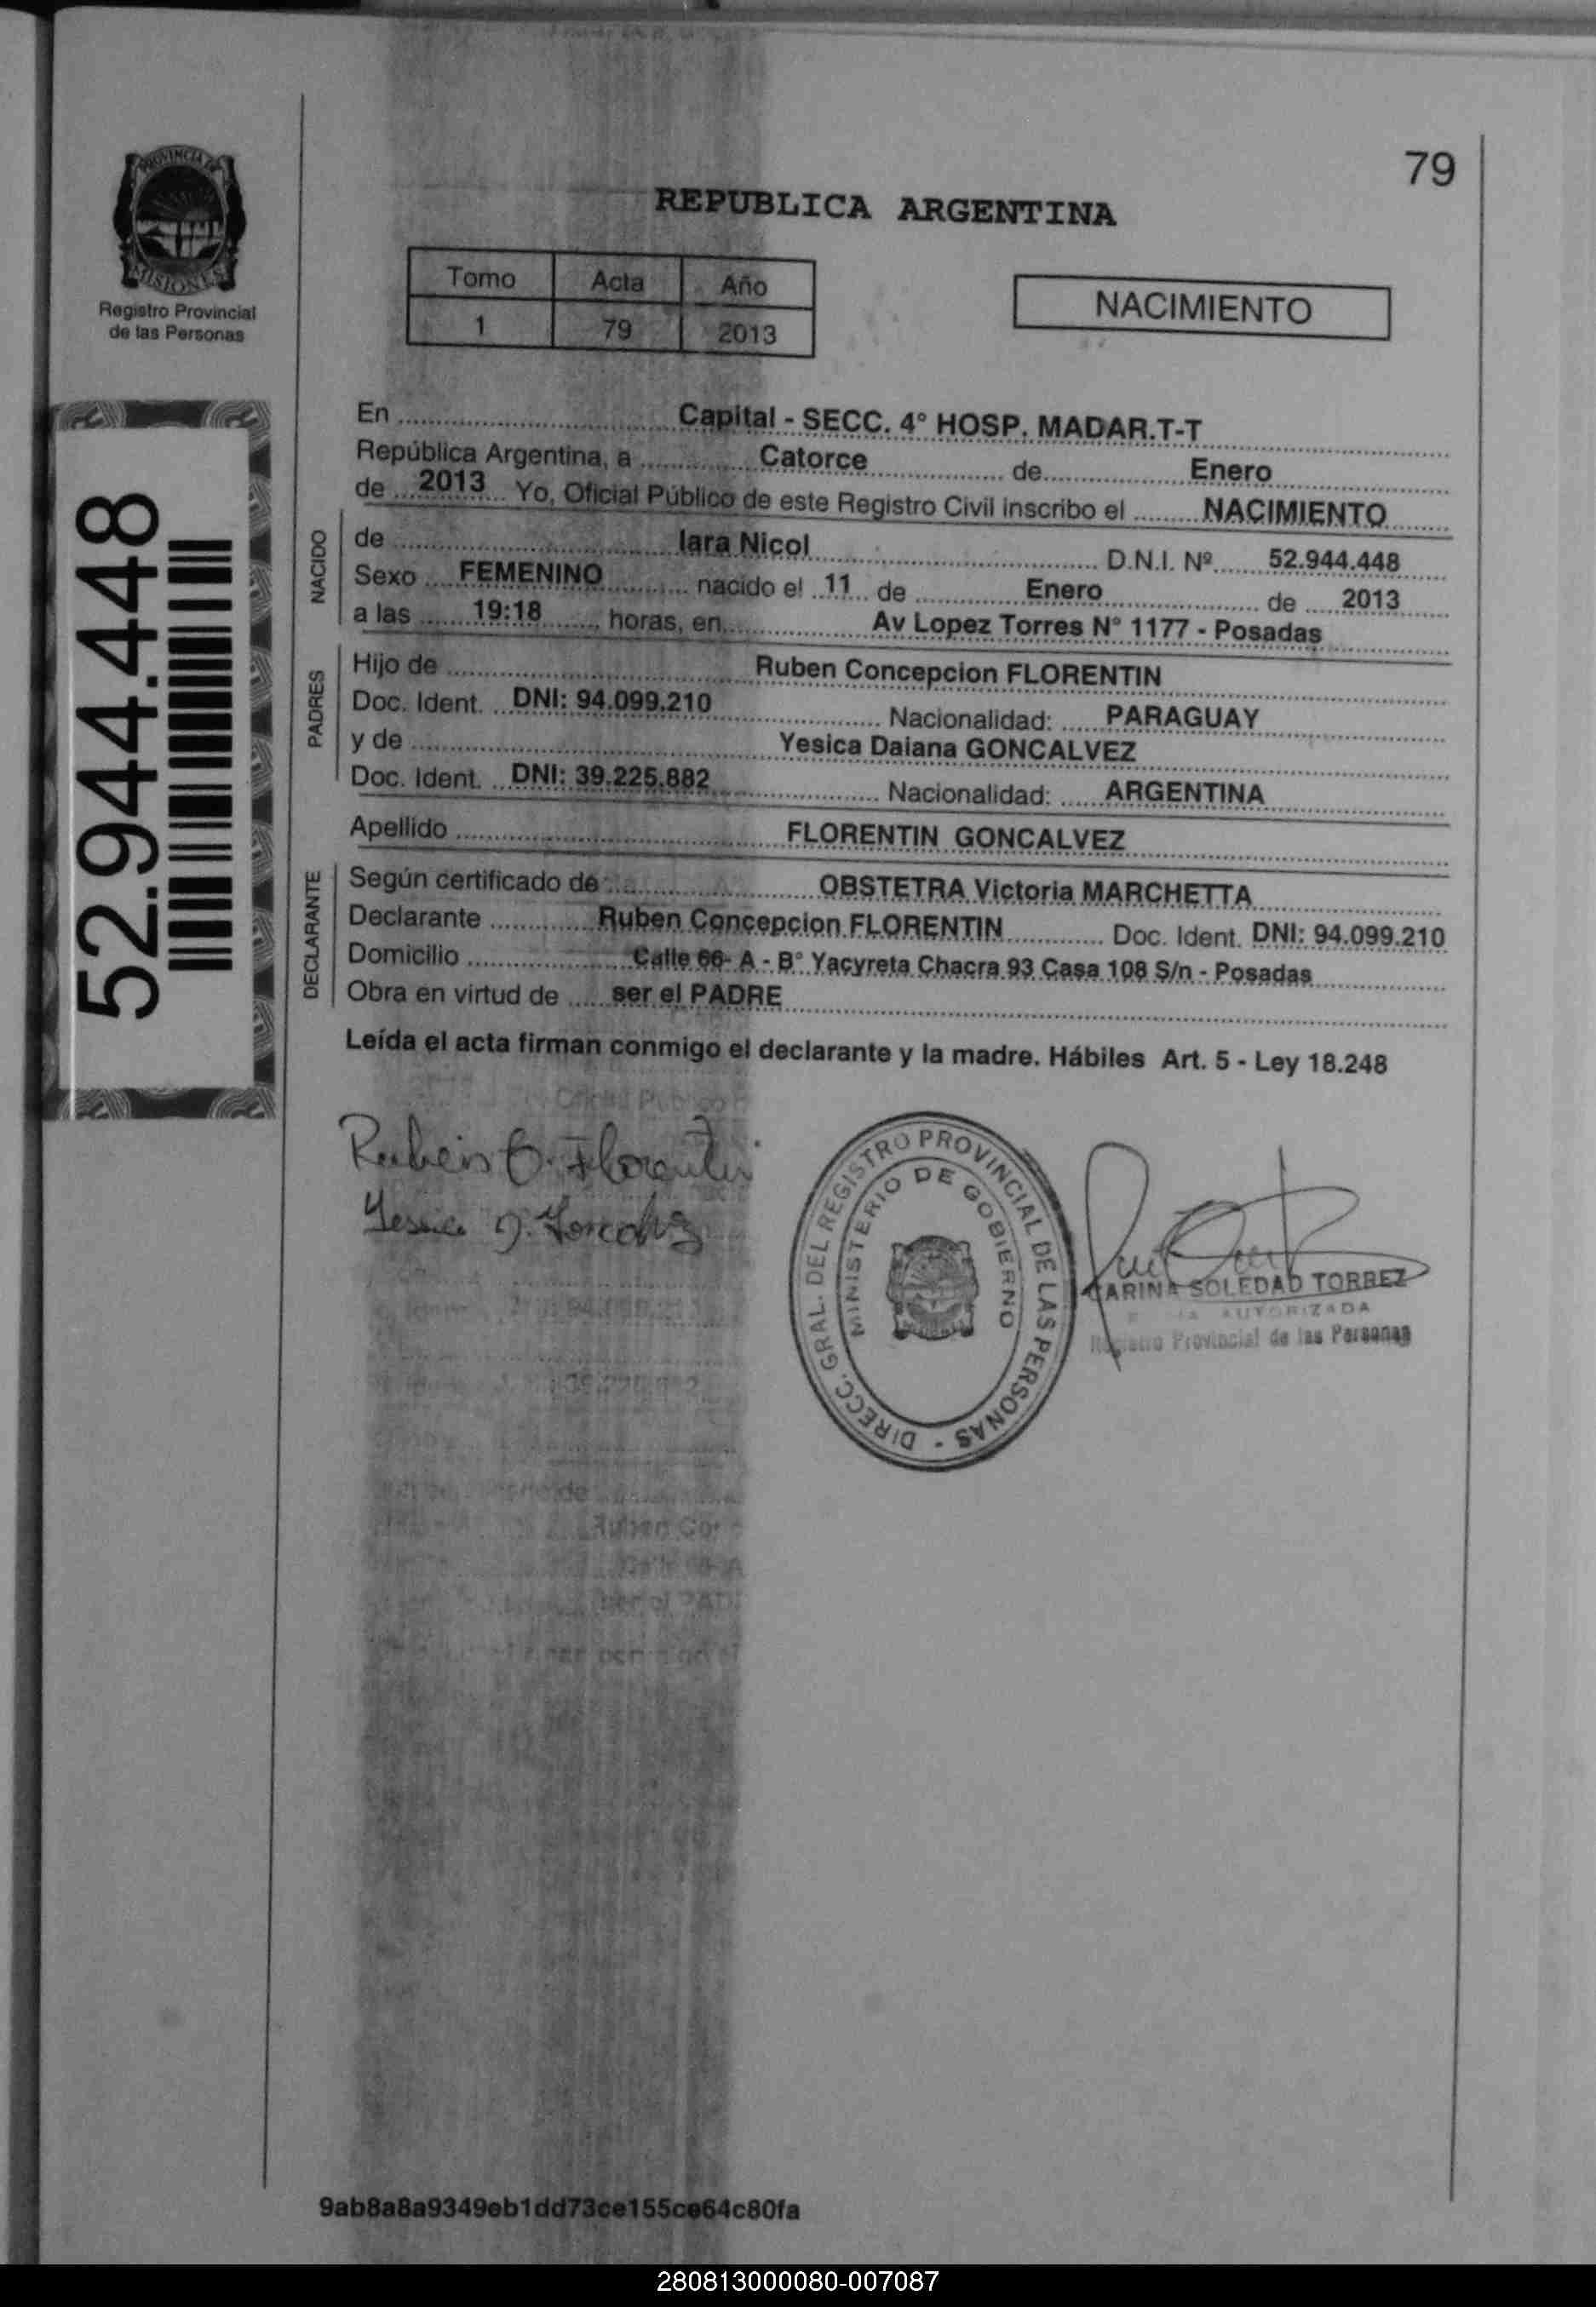 79
PROVINCIA DE
MISIONES
Registro Provincial
de las Personas
REPUBLICA ARGENTINA
Tomo Acta Año
1 79 2013
NACIMIENTO
52.944.448
En Capital - SECC. 4° HOSP. MADAR.T-T
República Argentina, a Catorce de Enero
de 2013 Yo, Oficial Público de este Registro Civil inscribo el NACIMIENTO
NACIDO
de Iara Nicol D.N.I. Nº 52.944.448
Sexo FEMENINO nacido el 11 de Enero de 2013
a las 19:18 horas, en Av Lopez Torres N° 1177 - Posadas
PADRES
Hijo de Ruben Concepcion FLORENTIN
Doc. Ident. DNI: 94.099.210 Nacionalidad: PARAGUAY
y de Yesica Daiana GONCALVEZ
Doc. Ident. DNI: 39.225.882 Nacionalidad: ARGENTINA
Apellido FLORENTIN GONCALVEZ
DECLARANTE
Según certificado de OBSTETRA Victoria MARCHETTA
Declarante Ruben Concepcion FLORENTIN Doc. Ident. DNI: 94.099.210
Domicilio Calle 66- A - B° Yacyreta Chacra 93 Casa 108 S/n - Posadas
Obra en virtud de ser el PADRE
Leída el acta firman conmigo el declarante y la madre. Hábiles Art. 5 - Ley 18.248
DIRECC. GRAL. DEL REGISTRO PROVINCIAL DE LAS PERSONAS -
MINISTERIO DE GOBIERNO
CARINA SOLEDAD TORREZ
AUTORIZADA
Registro Provincial de las Personas
9ab8a8a9349eb1dd73ce155ce64c80fa
280813000080-007087